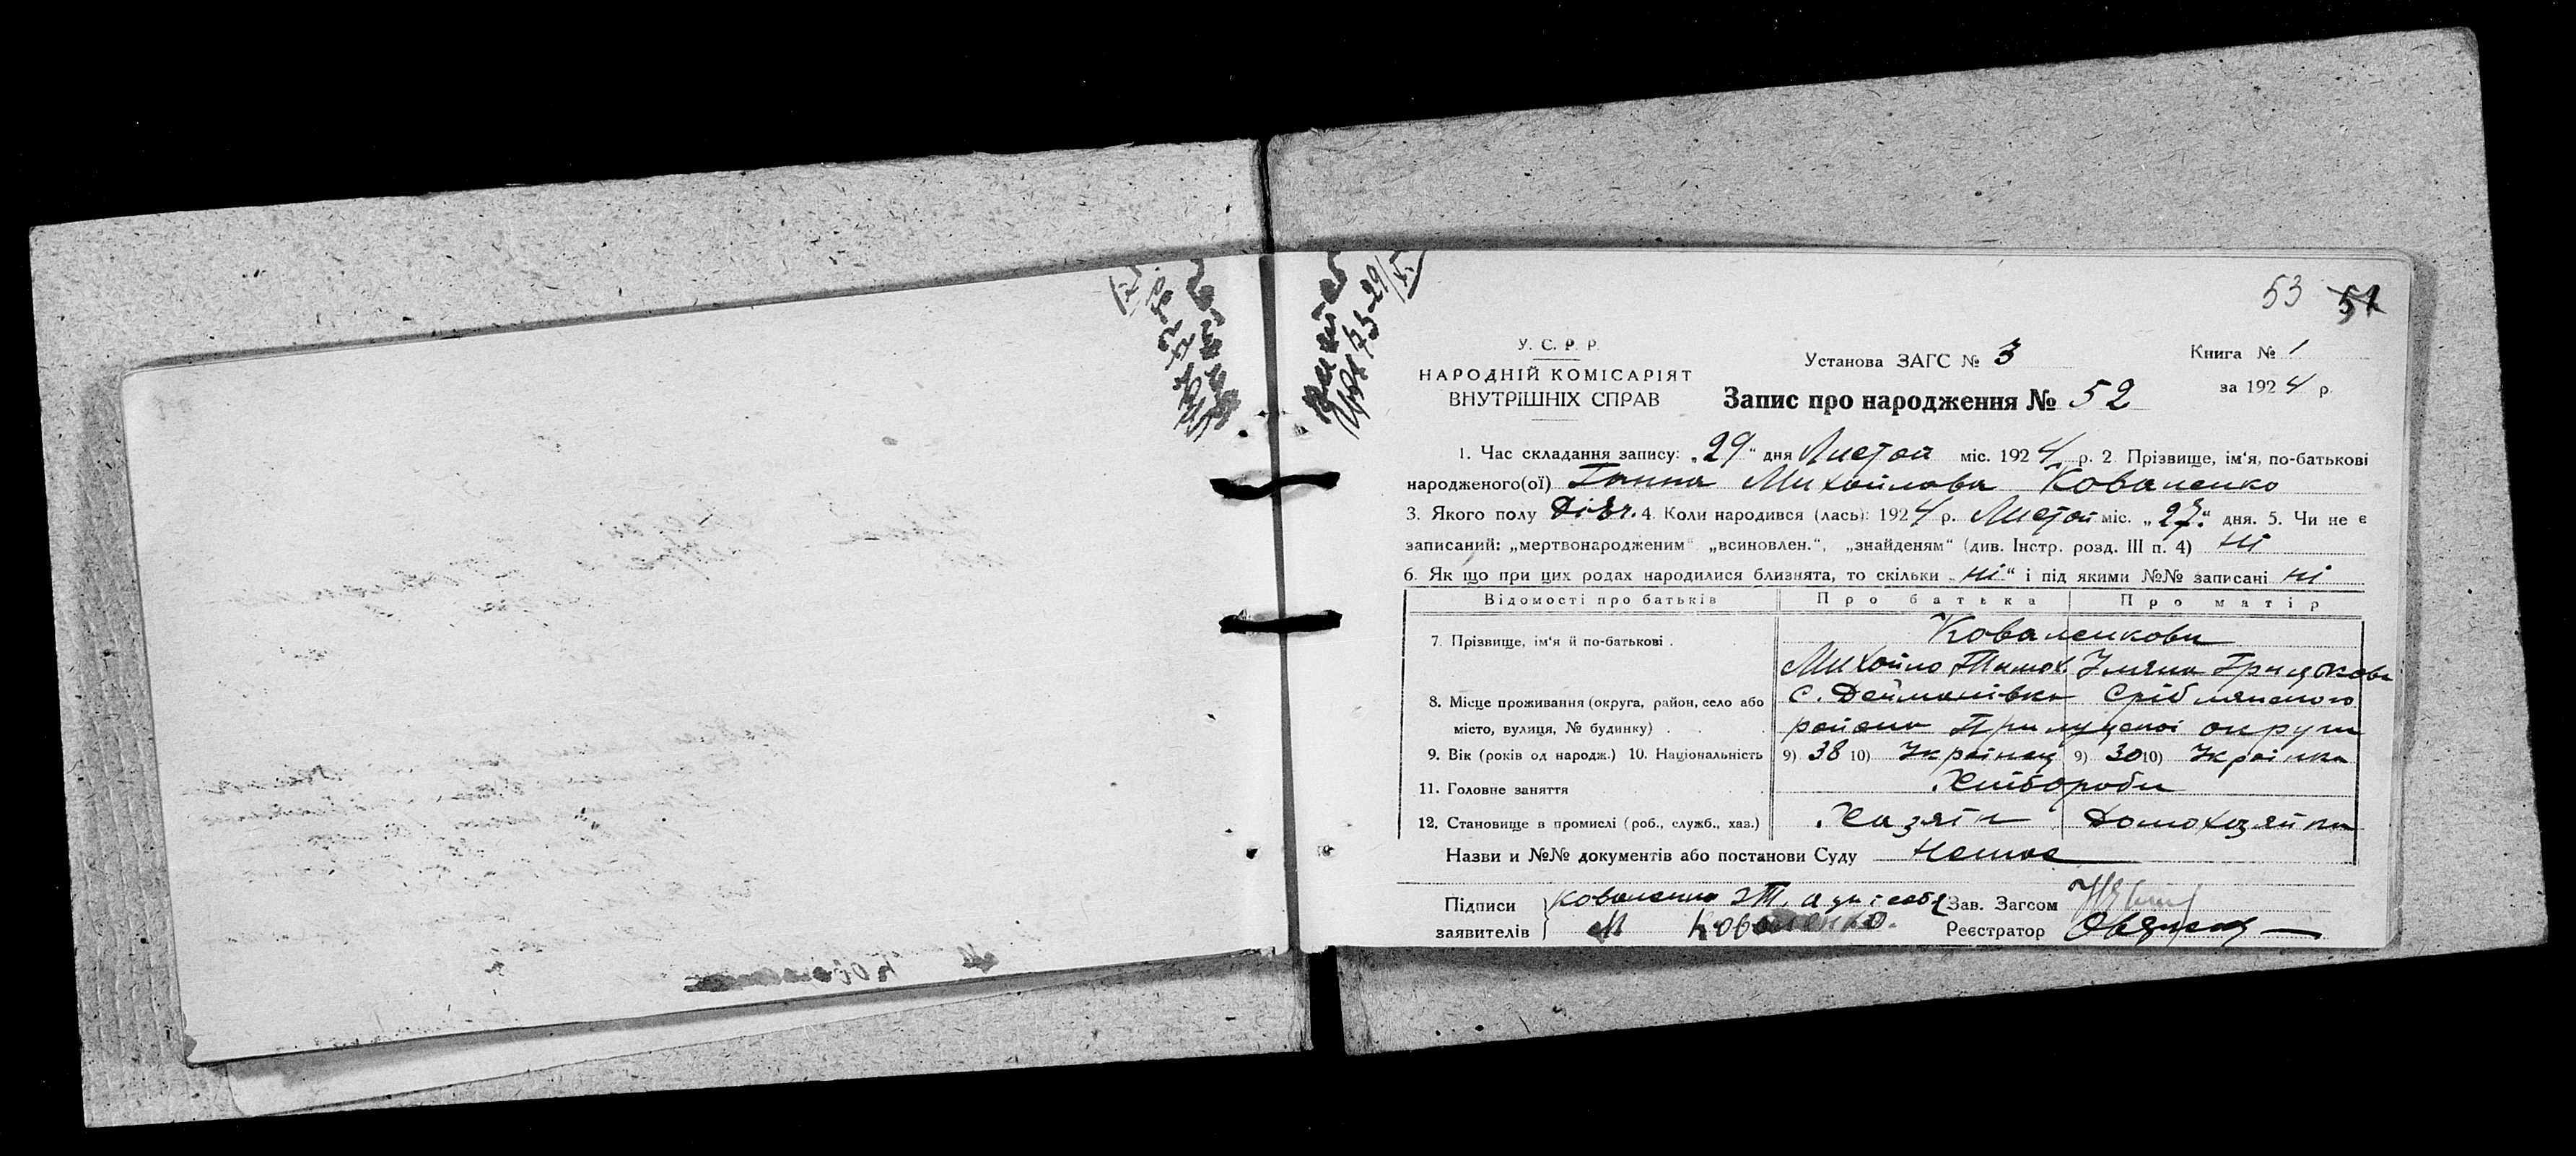 53 51
У. С. Р. Р.
НАРОДНІЙ КОМІСАРІЯТ
ВНУТРІШНІХ СПРАВ
Установа ЗАГС № 3
Книга № 1
за 1924 р.
Запис про народження № 52
1. Час складання запису: „29“ дня Листоп міс. 1924 р. 2. Прізвище, ім‘я, по-батькові
народженого(ої) Ганна Михайлова Коваленко
3. Якого полу Дівч. 4. Коли народився (лась): 1924 р. Листоп міс. „27“ дня. 5. Чи не є
записаний: „мертвонародженим“ „всиновлен.“, „знайденям“ (див. Інстр. розд. III п. 4) Ні
6. Як що при цих родах народилися близнята, то скільки „ні“ і під якими №№ записані ні
Відомості про батьків Про батька Про матір
7. Прізвище, ім‘я й по-батькові . Коваленкови
Михайло Тимох. Уляна Грицькова
8. Місце проживання (округа, район, село або С. Дейманівка Срібляньского
місто, вулиця, № будинку) . . . району Прилуцької округи
9. Вік (років од народж.) 10. Національність 9) 38 10) Українець 9) 30 10) Українка
11. Головне заняття Хлібороби
12. Становище в промислі (роб., служб., хаз.) Хазяїн Домохозяйка
Назви и №№ документів або постанови Суду Немає
Підписи Коваленко Зав. Загсом
заявителів М Коваленко. Реєстратор